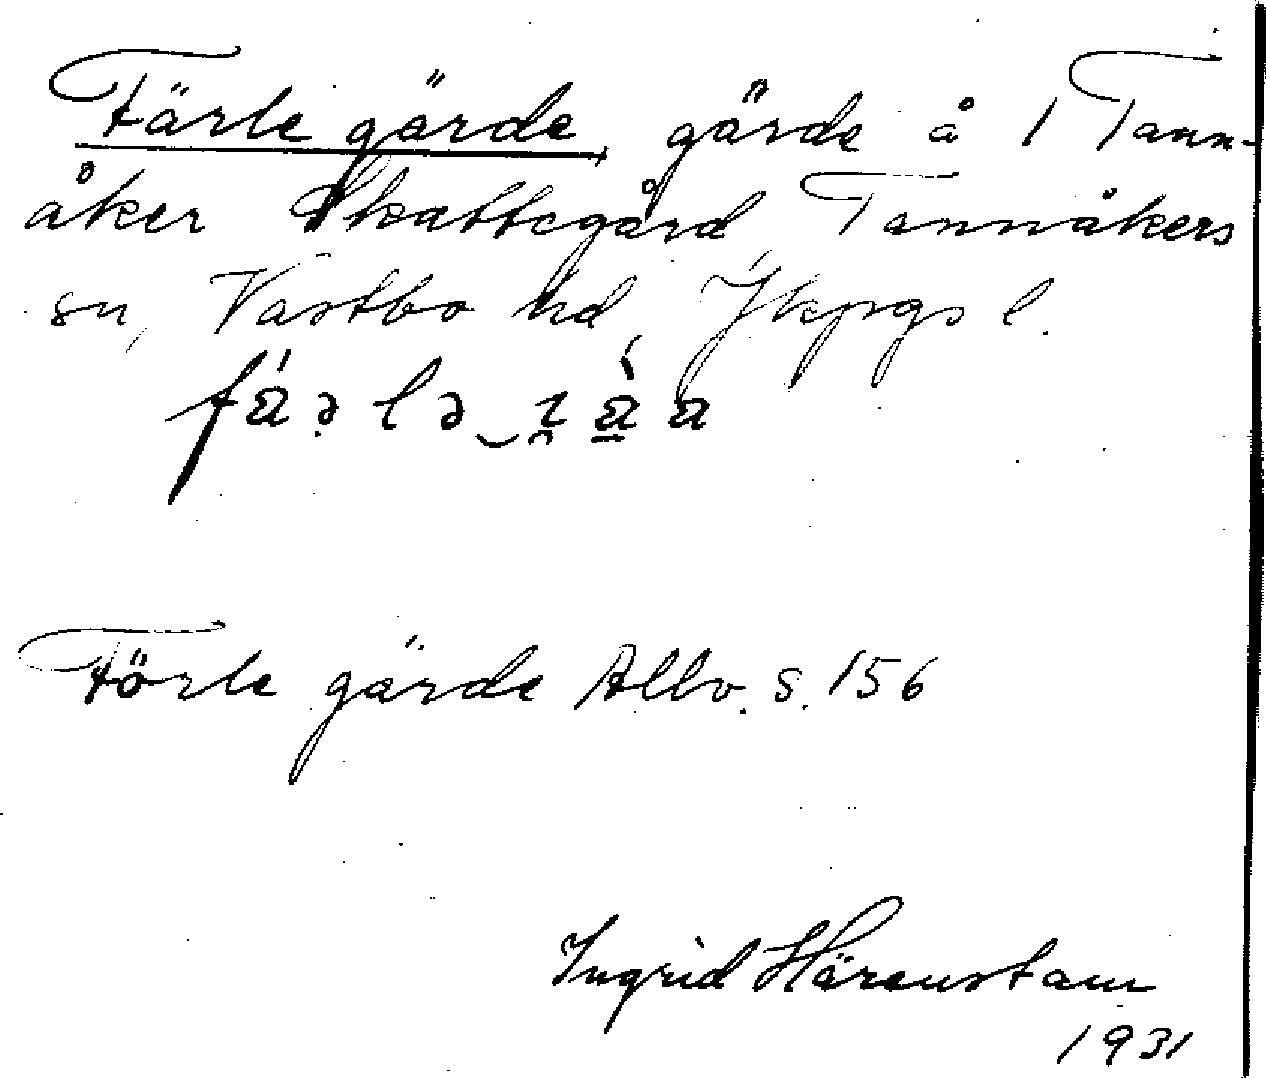 Färle gärde gärde å 1 Tann-
åker Skattegård, Tannåkers
sn, Västbo hd, Jkpgs l.
Förle gärde Allm. s. 156
Ingrid Härenstam
1931